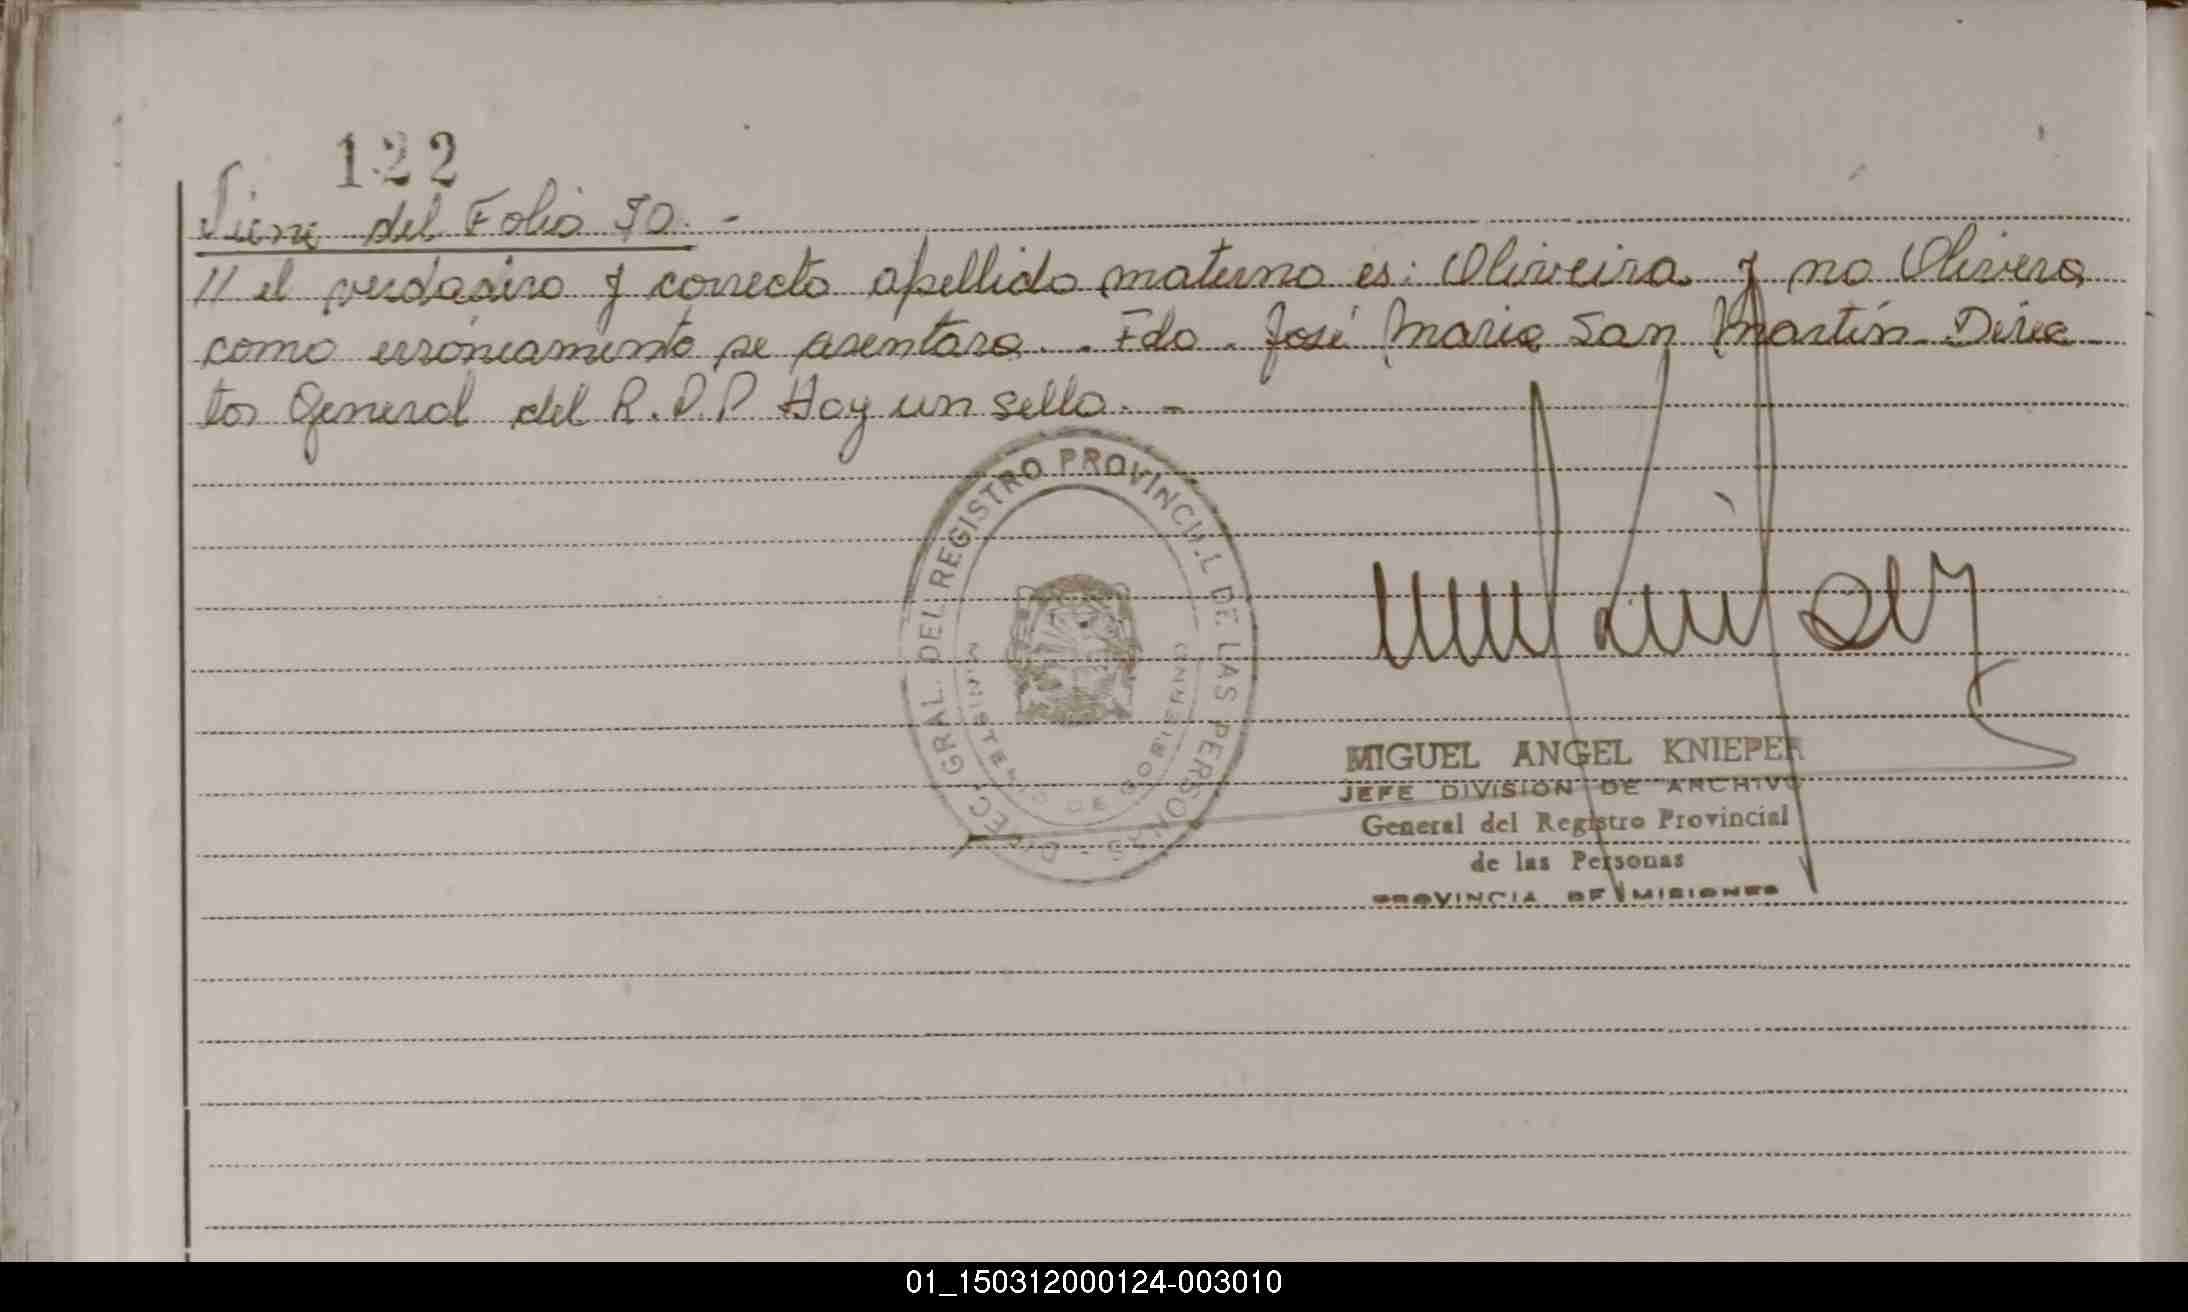 122
Viene del Folio 50. -
// el verdadero y correcto apellido materno es: Oliveira y no Olivera
como erróneamente se asentara. - Fdo. José Maria San Martín - Direc
tor General del R.P.P. Hay un sello. -
DIREC. GRAL. DEL REGISTRO PROVINCIAL DE LAS PERSONAS -
MINISTERIO DE GOBIERNO
MIGUEL ANGEL KNIEPER
JEFE DIVISION DE ARCHIVO
General del Registro Provincial
de las Personas
PROVINCIA DE MISIONES
01_150312000124-003010